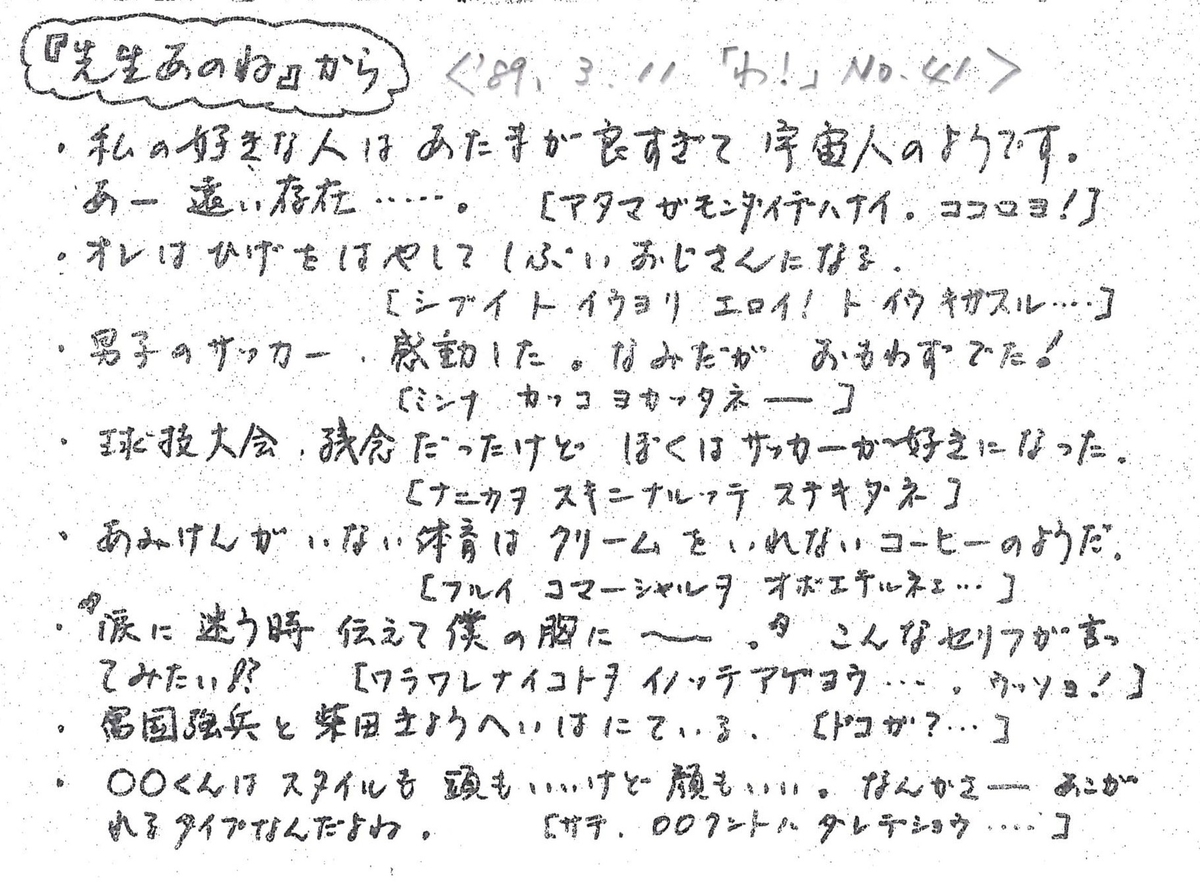 『先生あのね』から 〈'89, 3. 11 「わ!」 No. 41〉
・私の好きな人はあたまが良すぎて 宇宙人のようです。
あー 遠い存在……。 [アタマガモンダイデハナイ。ココロヨ!]
・オレは ひげをはやして しぶいおじさんになる.
[シブイト イウヨリ エロイ! ト イウキガスル……]
・男子のサッカー、感動した。なみだが おもわずでた!
[ミンナ カッコヨカッタネー]
・球技大会、残念だったけど ぼくはサッカーが好きになった。
[ナニカヲ スキニナルッテ ステキダネ]
・あみけんが いない体育は クリームをいれないコーヒーのようだ。
[フルイ コマーシャルヲ オボエテルネェ…]
・〝涙に迷う時 伝えて僕の胸に 〜 。〟 こんなセリフが言っ
てみたい!? [ワラワレナイコトヲ イノッテアゲヨウ…. ウッソヨ!]
・富国強兵と柴田きょうへいはにている. [ドコガ?…]
・○○くんは スタイルも 頭もいいけど 顔もいい。なんかさー あこが
れるタイプなんだよね。 [サテ、○○クントハ ダレデショウ……]